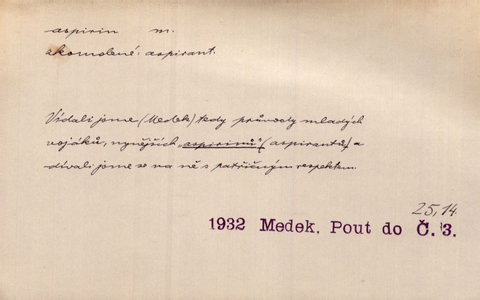 aspirin m.
zkomolené: aspirant.
Vídali jsme (Medek) tedy průvody mladých
vojáků, nynějších „aspirinů“ (aspirantů) a
dívali jsme se na ně s patřičným respektem.
25,14
1932 Medek, Pout do Č. 3.